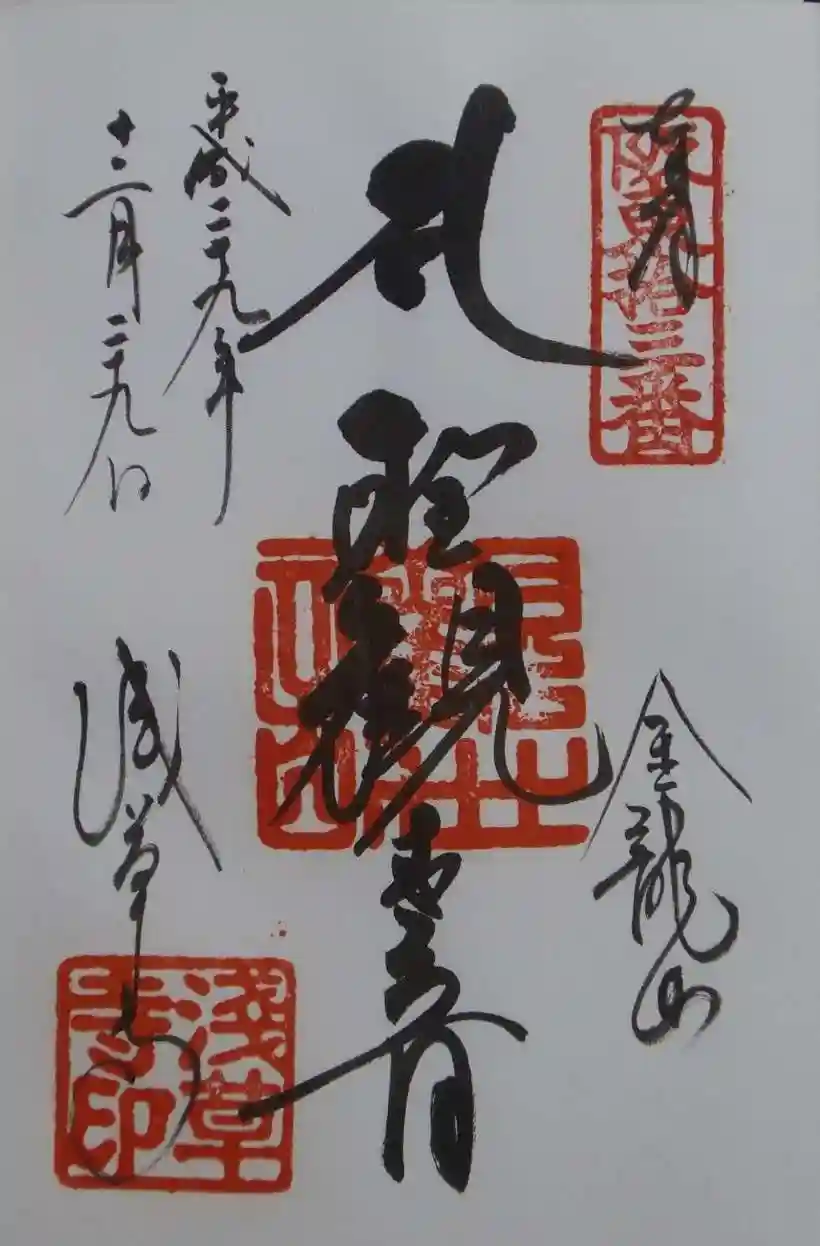 奉拝
阪東拾三番
金龍山
聖観世音
平成二十九年
十二月二十九日
浅草寺
淺草寺印